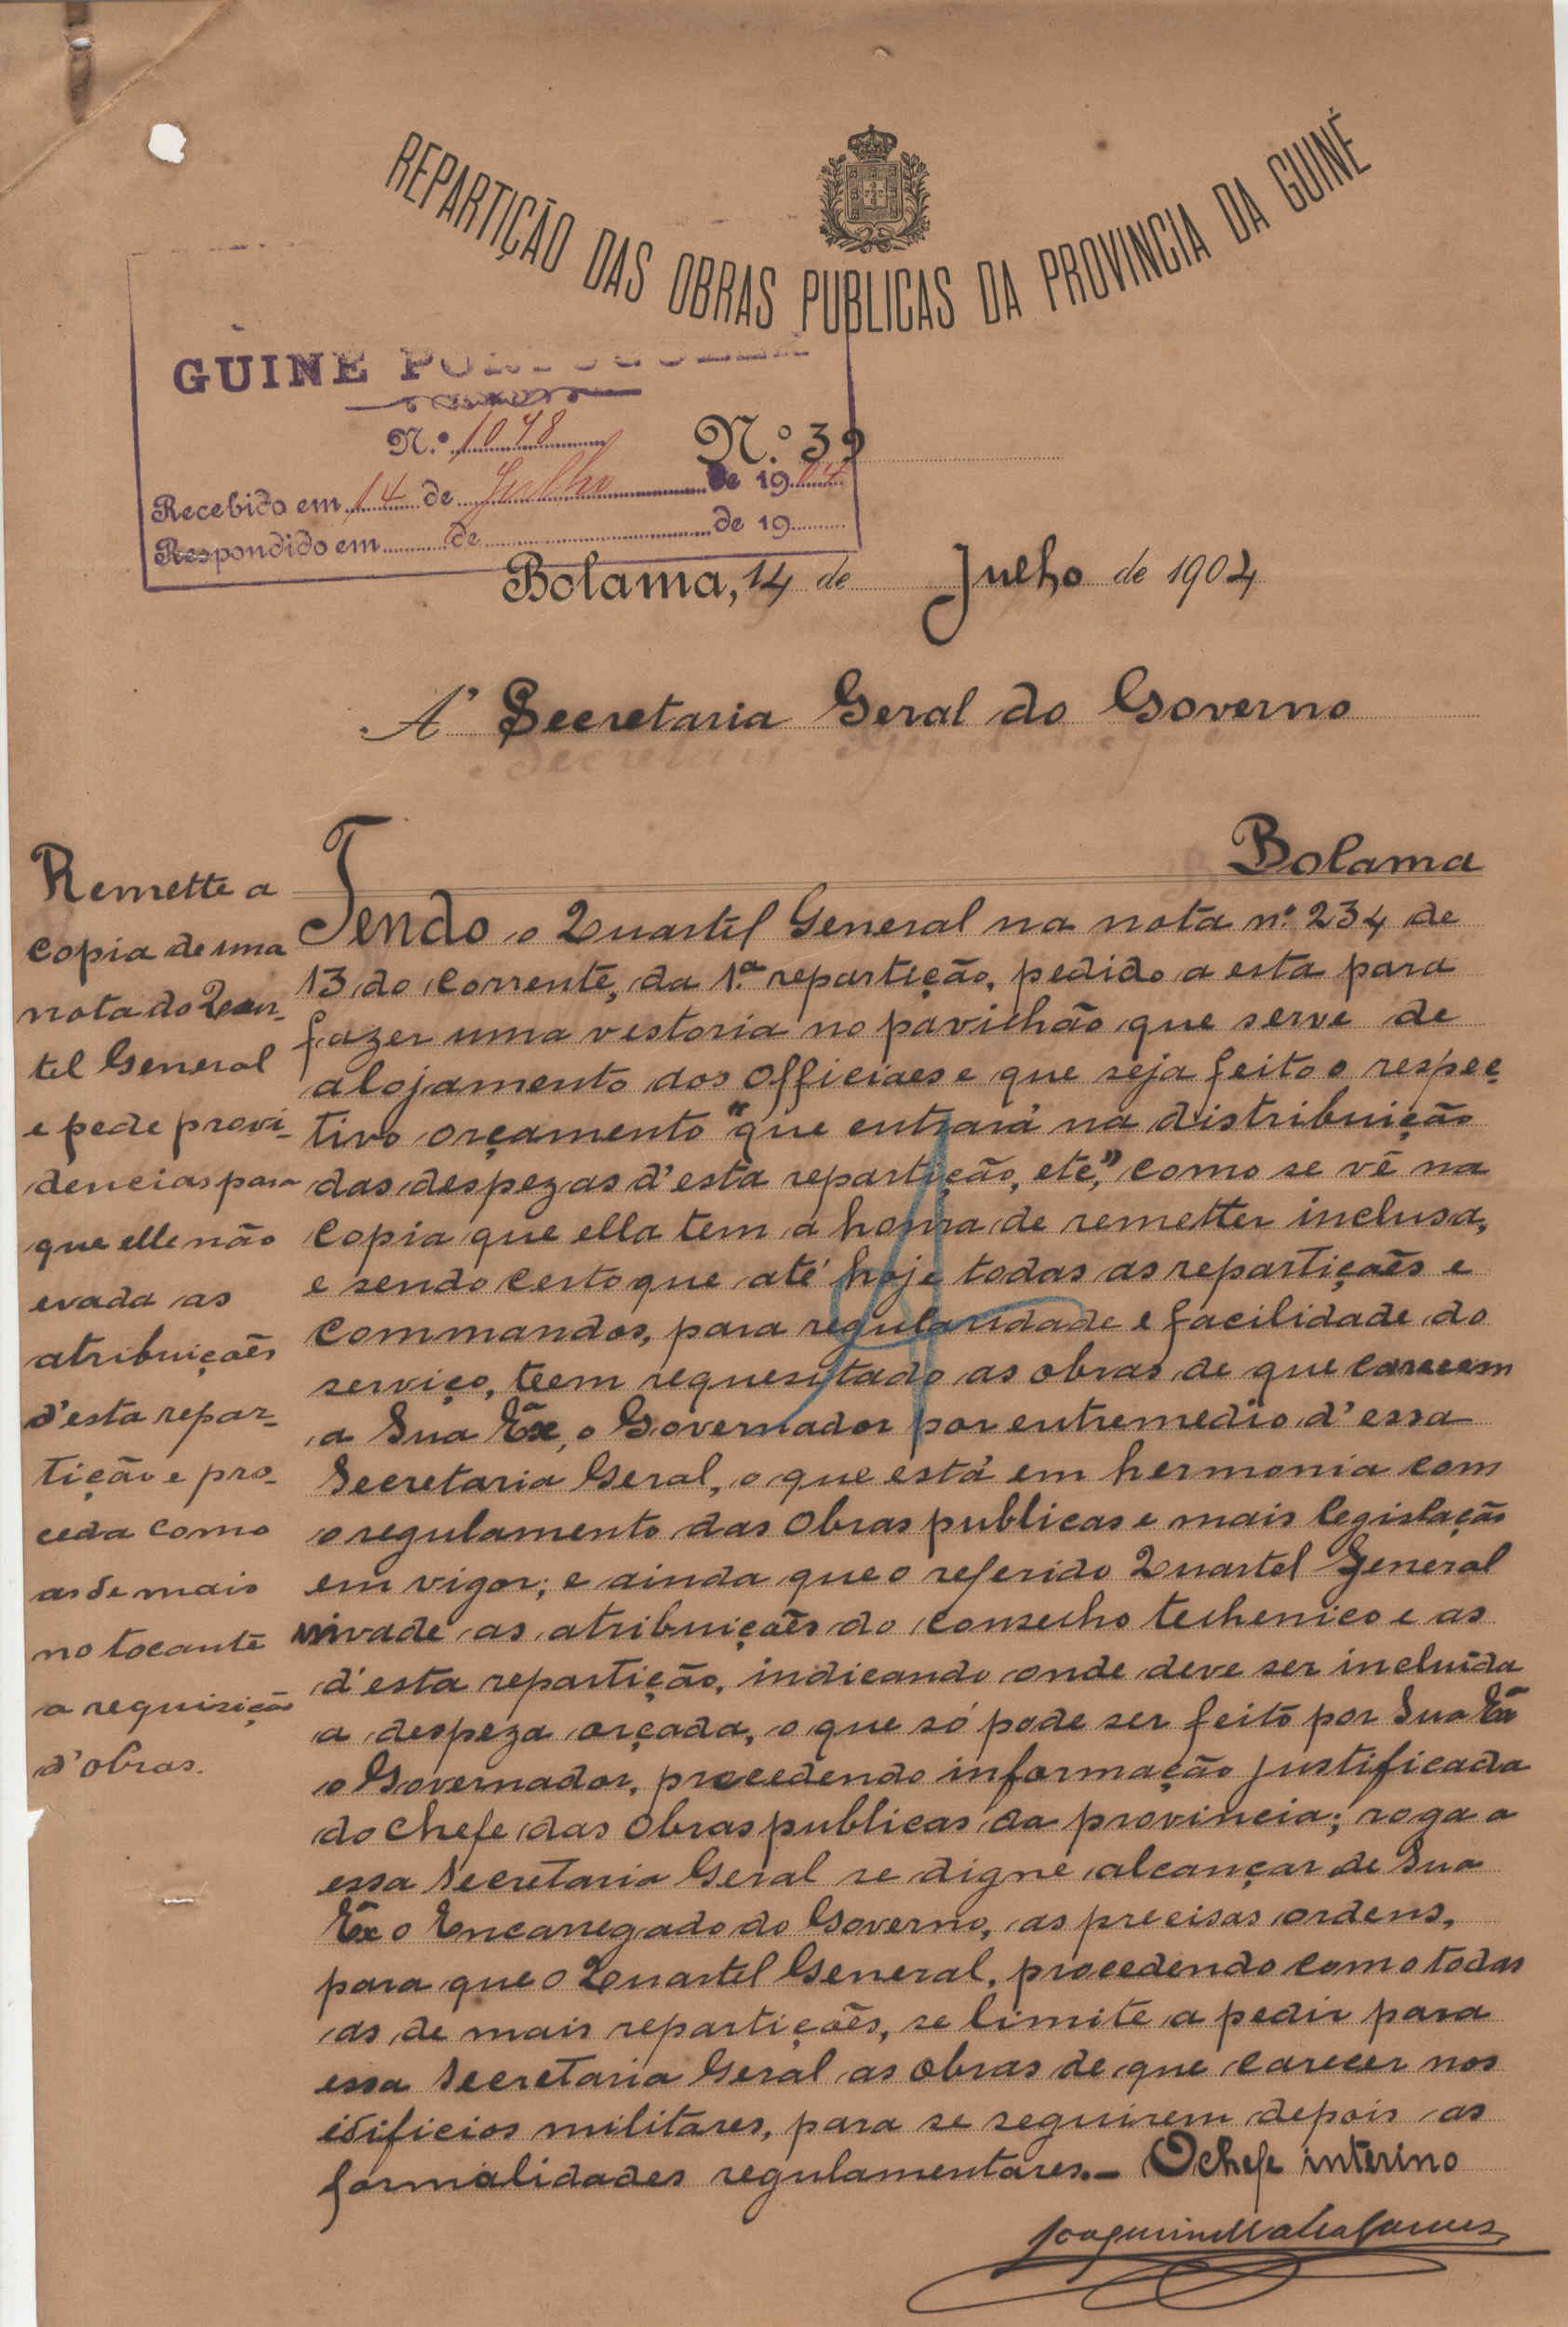 REPARTIÇÃO DAS OBRAS PUBLICAS DA PROVINCIA DA GUINÉ
GUINÉ PORTUGUEZA
N.º 1048
N.º 39
Recebido em 14 de Julho de 1904
Respondido em de de 19
Bolama, 14 de Julho de 1904
A' Secretaria Geral do Governo
Bolama
Remette a
copia de uma
nota do Quar-
tel General
e pede provi-
dencias para
que elle não
evada as
atribuições
d'esta repar-
tição e pro-
ceda como
as de mais
no tocante
a requisição
d'obras.
Tendo o Quartel General na nota n.º 234 de
13 do corrente, da 1.ª repartição, pedido a esta para
fazer uma vestoria no pavilhão que serve de
alojamento dos officiaes e que seja feito o respec
tivo orçamento "que entrará na distribuição
das despezas d'esta repartição, etc", como se vê na
copia que ella tem a honra de remetter inclusa,
e sendo certo que até hoje todas as repartições e
commandos, para regularidade e facilidade do
serviço, teem requesitado as obras de que carecem
a Sua Exª, o Governador por entremedio d'essa
Secretaria Geral, o que está em hermonia com
o regulamento das Obras publicas e mais legislação
em vigor; e ainda que o referido Quartel General
invade as atribuições do conselho techenico e as
d'esta repartição, indicando onde deve ser incluida
a despeza orçada, o que só pode ser feito por Sua Exª
o Governador, precedendo informação justificada
do chefe das Obras publicas da provincia; roga a
essa Secretaria Geral se digne alcançar de Sua
Exª o Encarregado do Governo, as precisas ordens,
para que o Quartel General, procedendo como todas
as de mais repartições, se limite a pedir para
essa Secretaria Geral as obras de que carecer nos
edificios militares, para se seguirem depois as
formalidades regulamentares.- O chefe interino